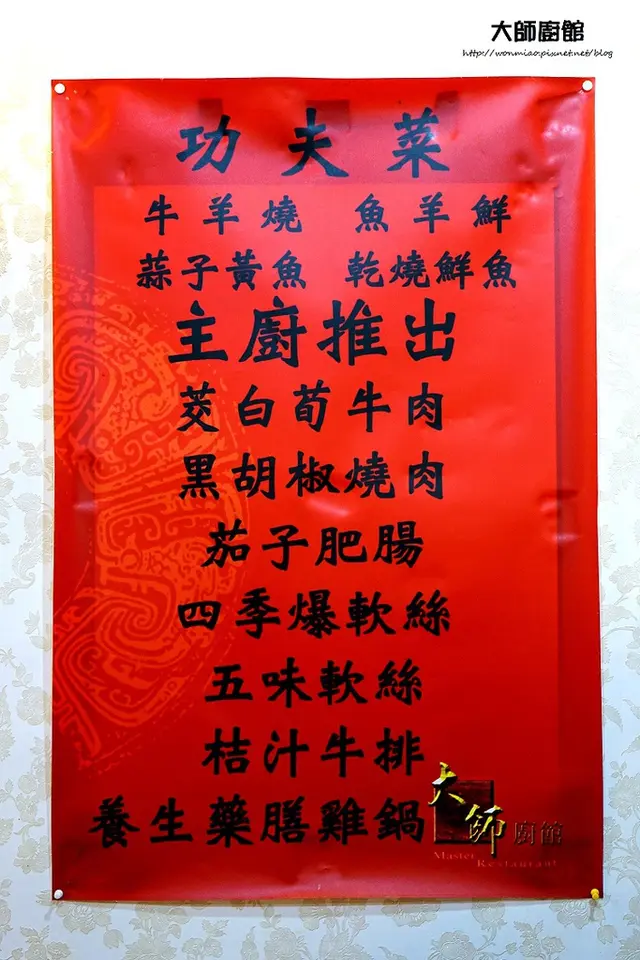 大師廚館
http://wonmiao.pixnet.net/blog
功夫菜
牛羊燒 魚羊鮮
蒜子黃魚 乾燒鮮魚
主廚推出
茭白荀牛肉
黑胡椒燒肉
茄子肥腸
四季爆軟絲
五味軟絲
桔汁牛排
養生藥膳雞鍋
大師廚館
Master
Restaurant